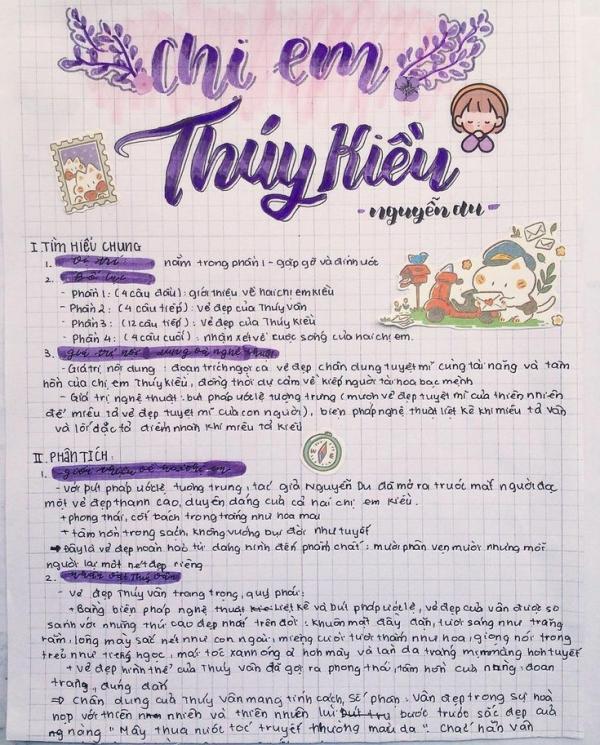 chị em
Thúy Kiều
- nguyễn du -
I. TÌM HIỂU CHUNG
1. Vị trí: nằm trong phần 1 - gặp gỡ và đính ước
2. Bố cục
- Phần 1: (4 câu đầu): giới thiệu về hai chị em kiều
- Phần 2: (4 câu tiếp): vẻ đẹp của Thúy Vân
- Phần 3: (12 câu tiếp): vẻ đẹp của Thúy Kiều
- Phần 4: (4 câu cuối): nhận xét về cuộc sống của hai chị em.
3. giá trị nội dung và nghệ thuật
- Giá trị nội dung: đoạn trích ngợi ca vẻ đẹp chân dung tuyệt mĩ cùng tài năng và tâm
hồn của chị em Thúy Kiều, đồng thời dự cảm về kiếp người tài hoa bạc mệnh
- Giá trị nghệ thuật: bút pháp ước lệ tượng trưng (mượn vẻ đẹp tuyệt mĩ của thiên nhiên
để miêu tả vẻ đẹp tuyệt mĩ của con người), biện pháp nghệ thuật liệt kê khi miêu tả Vân
và lối đặc tả điểm nhãn khi miêu tả kiều
II. PHÂN TÍCH:
1. giới thiệu về hai chị em
- với bút pháp ước lệ, tượng trưng, tác giả Nguyễn Du đã mở ra trước mắt người đọc
một vẻ đẹp thanh cao, duyên dáng của cả hai chị em kiều.
+ phong thái, cốt cách trong trắng như hoa mai
+ tâm hồn trong sạch, không vướng bụi đời như tuyết
➡ Đây là vẻ đẹp hoàn hảo từ dáng hình đến phẩm chất: mười phân vẹn mười nhưng mỗi
người lại một nét đẹp riêng
2. nhân vật Thúy Vân
- vẻ đẹp Thúy Vân trang trọng, quý phái:
+ Bằng biện pháp nghệ thuật liệt kê và bút pháp ước lệ, vẻ đẹp của vân được so
sánh với những thứ cao đẹp nhất trên đời: khuôn mặt đầy đặn, tươi sáng như trăng
rằm, lông mày sắc nét như con ngài, miệng cười tươi thắm như hoa, giọng nói trong
trẻo như tiếng ngọc, mái tóc xanh óng ả hơn mây và làn da trắng mịn màng hơn tuyết
+ vẻ đẹp hình thể của Thúy vân đã gợi ra phong thái, tâm hồn của nàng: đoan
trang, đứng đắn
⇒ chân dung của Thúy Vân mang tính cách, số phận: vân đẹp trong sự hoà
hợp với thiên nhiên và thiên nhiên lùi bước trước sắc đẹp của
nàng "Mây thua nước tóc tuyết nhường màu da". Chắc hẳn vân